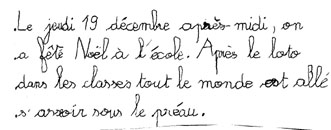 Le jeudi 19 décembre après-midi, on
a fêté Noël à l'école. Après le loto
dans les classes tout le monde est allé
s'assoir sous le préau.